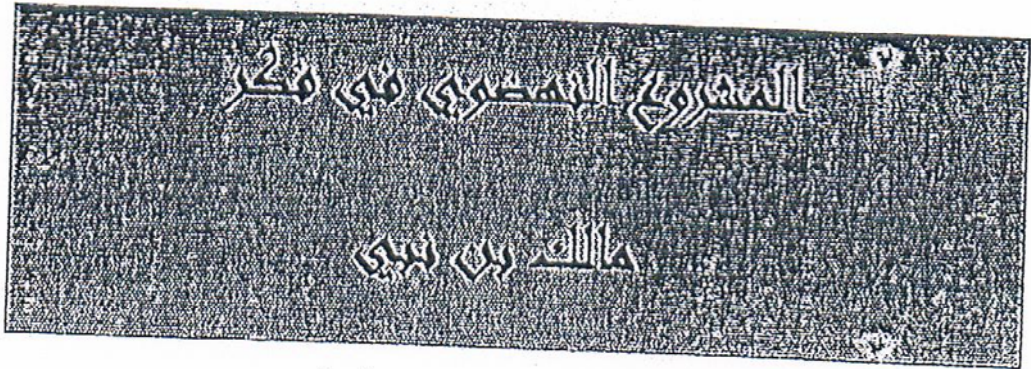 المشروع النهضوي في فكر
مالك بن نبي